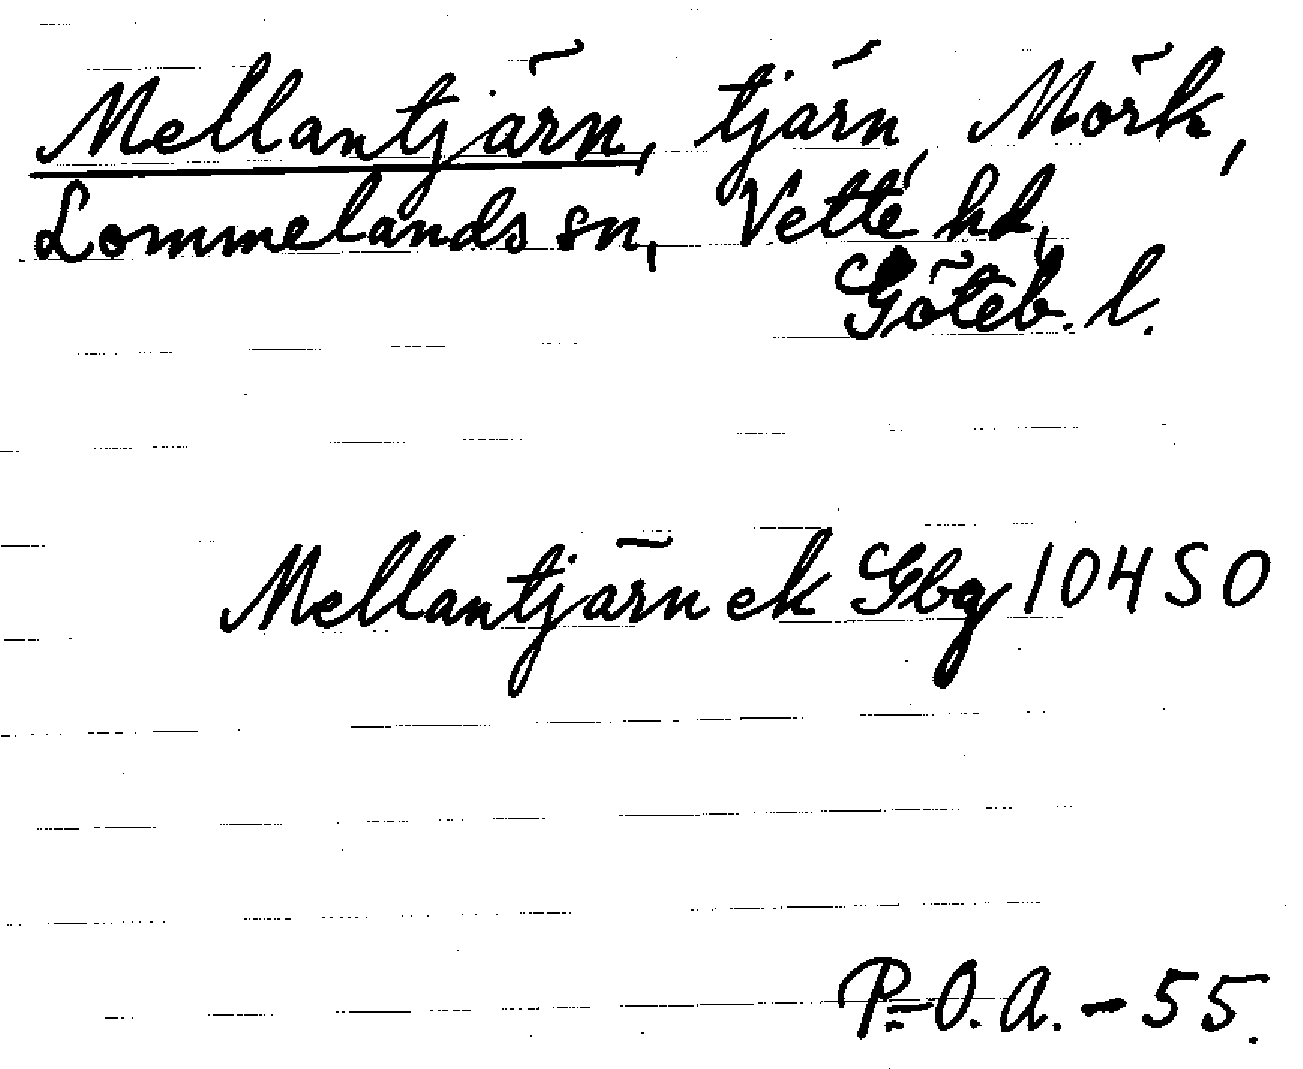 Mellantjärn, tjärn, Mörk,
Lommelands sn, Vette hd,
Göteb. l.
Mellantjärn ek Gbg 10450
P.-O. A. - 55.